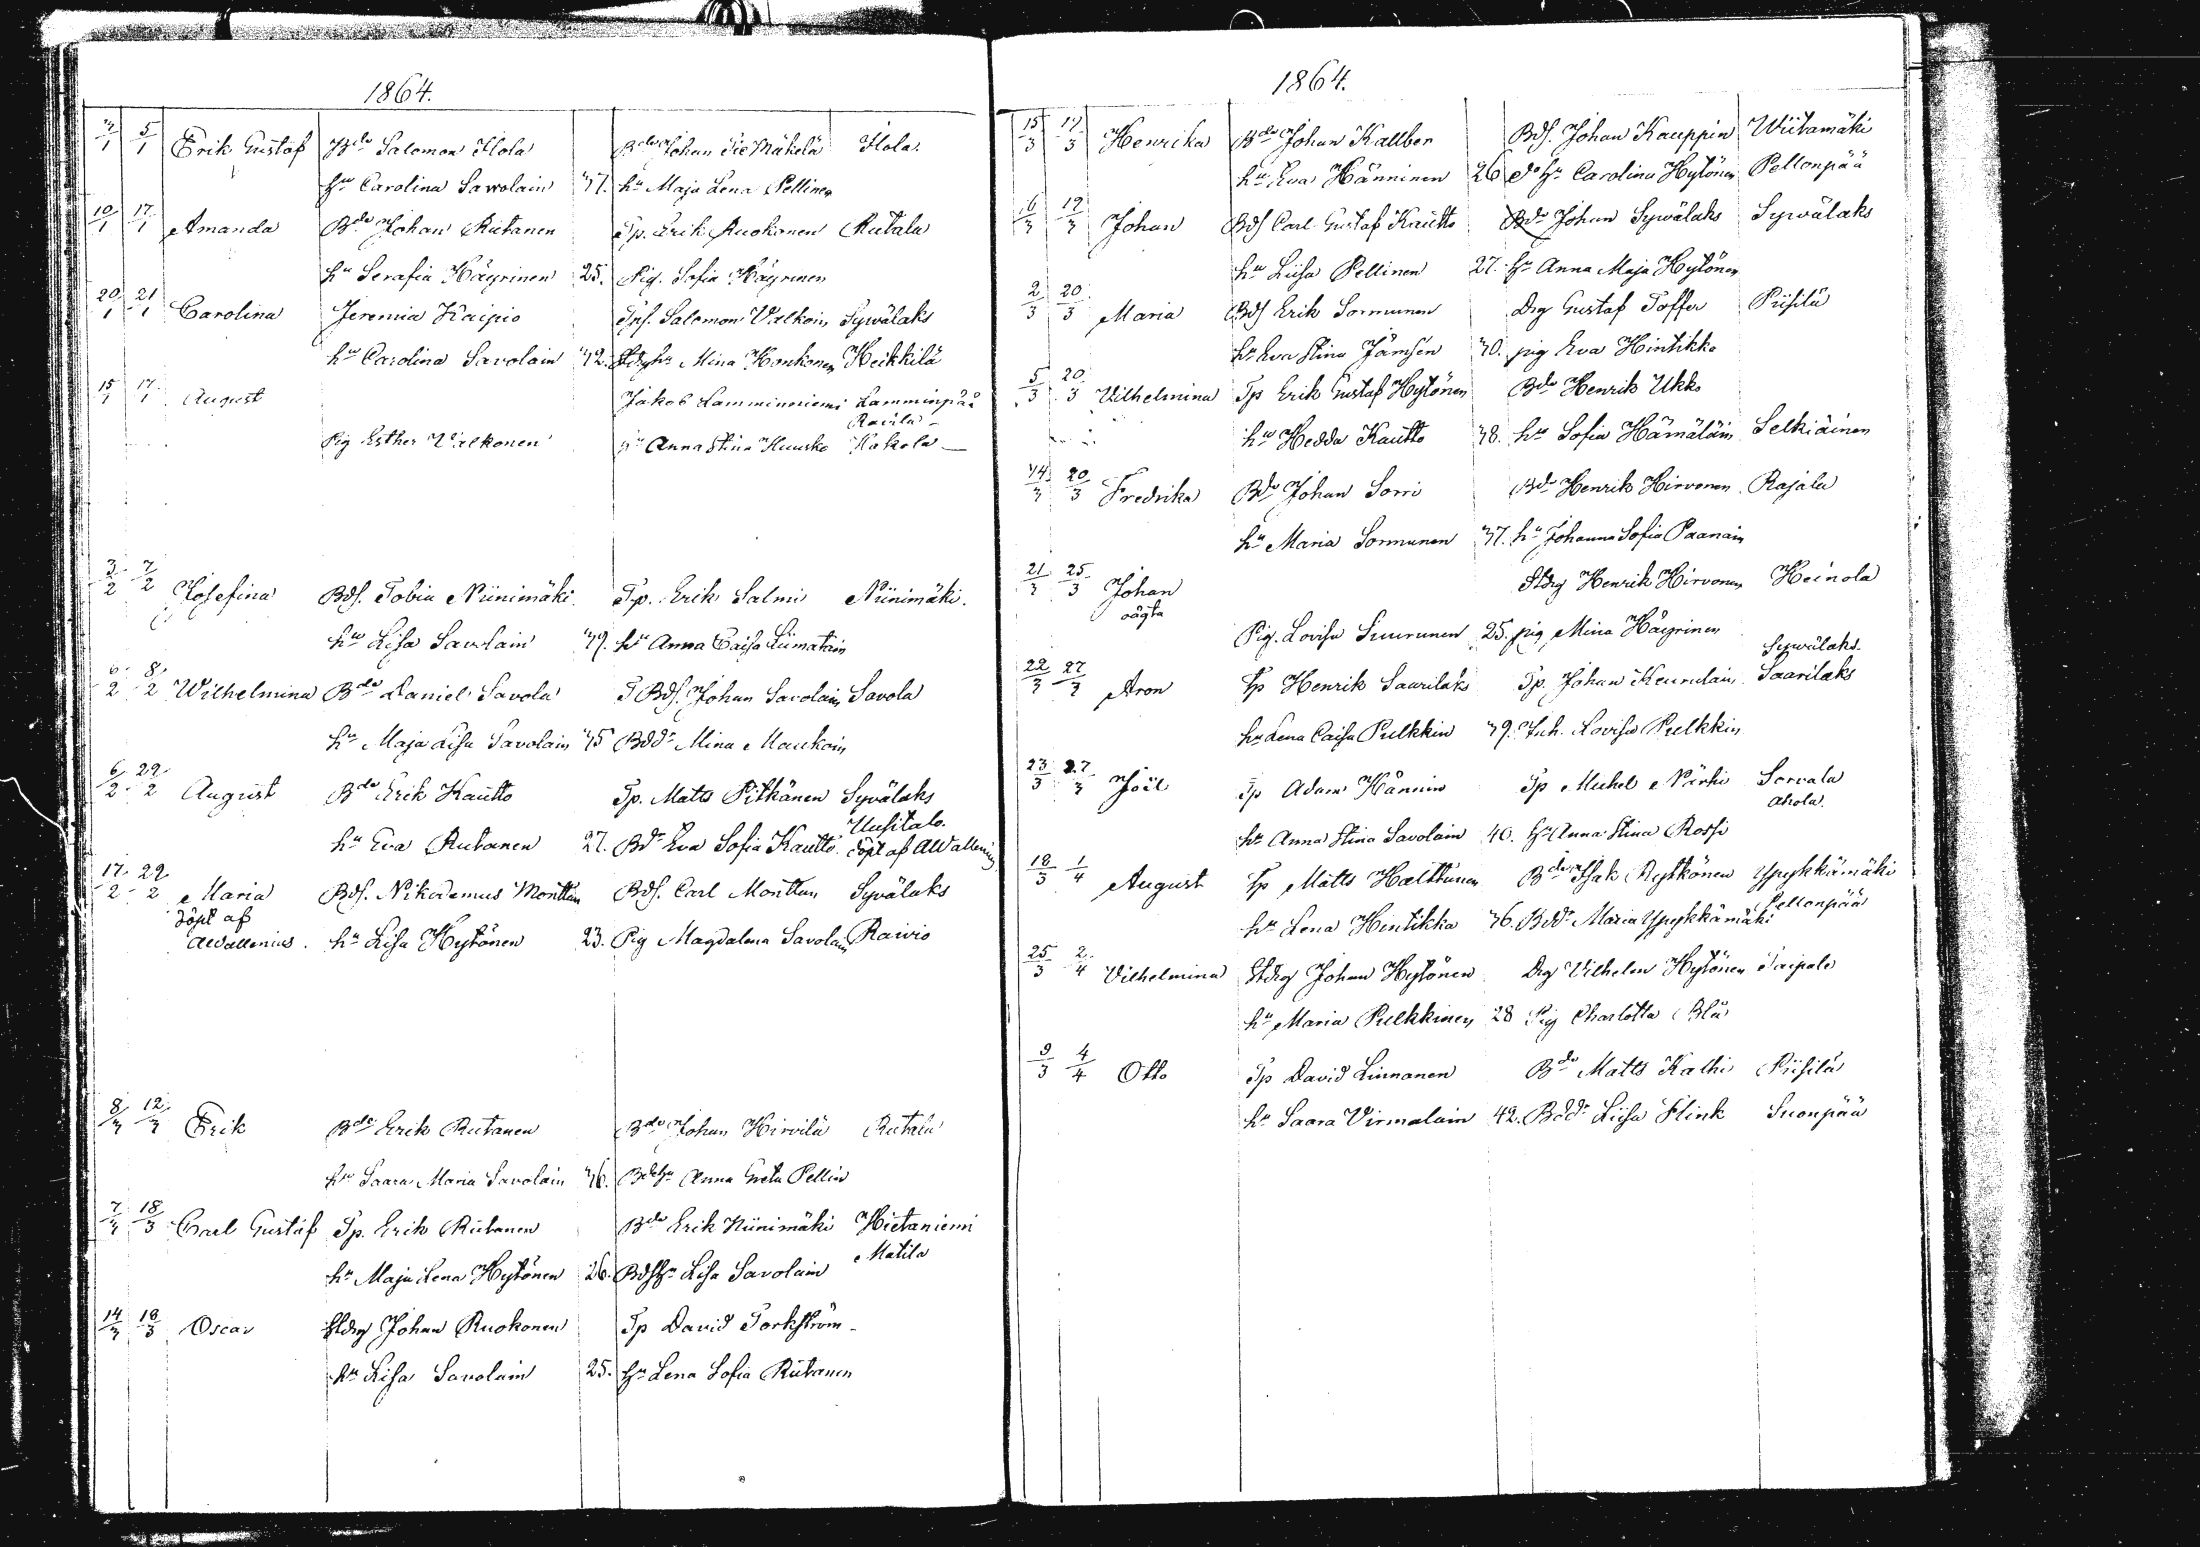 1864.
5/1 Erik Gustaf Bde Salomon Ilola Bde Johan Tie Mäkelä Ilola.
hu Carolina Savolain 37. hu Maja Lena Pellinen
10/1 17/1 Amanda Bde Johan Rutanen Tp. Erik Ruokonen Rutala
hu Serafia Häyrinen 25. Pig. Sofia Häyrinen
20/1 21/1 Carolina Jeremia Kaipio Tpf. Salomon Valkoin Sywälaks
hu Carolina Savolain 42. Mina Honkonen Heikkilä
15/1 17/1 August Jakob Lamminniemi Lamminpää
Raivila
Pig Esther Valkonen hu Anna Stina Kakola
3/2 7/2 Josefina Bdf. Tobia Niinimäki Tp. Erik Salmi Niinimäki.
hu Lisa Savolain 39. hu Anna Caisa Liimatain
8/2 Wilhelmina Bde Daniel Savola T Bdf. Johan Savolain Savola
hu Maja Lisa Savolain 35 Bddr Mina Maukoin
6/2 29/2 August Bde Erik Kautto Tp. Matts Pitkänen Syvälaks
Uusitalo.
hu Eva Rutanen 27. Bdr Eva Sofia Kautto. döpt af AWallenius
17/2 29/2 Maria Bdf. Nikodemus Monttin Bdf. Carl Monttin Syvälaks
döpt af
AWallenius. hu Lisa Hytönen 23. Pig Magdalena Savolain Raivio
8/3 12/3 Erik Bde Erik Rutanen Bde Johan Hirvilä Rutala
hu Saara Maria Savolain 36. Anna Greta Pellin
7/3 18/3 Carl Gustaf Tp. Erik Rutanen Bde Erik Niinimäki Hietaniemi
Matila
hu Maja Lena Hytönen 26. Lisa Savolain
14/3 18/3 Oscar Stdrg Johan Ruokonen Tp David Torkström
hu Lisa Savolain 25. hu Lena Sofia Rutanen
1864.
15/3 17/3 Henrika Bde Johan Kallber Bdf. Johan Kauppin Wiitamäki
hu Eva Hänninen 26 do hu Carolina Hytönen Pellonpää
16/3 19/3 Johan Bdf Carl Gustaf Kautto Bde Johan Sywälaks Sywälaks
hu Liisa Pellinen 27. hu Anna Maja Hytönen
2/3 20/3 Maria Bdf Erik Sormunen Drg Gustaf Toffer Piisilä
hu Eva Stina Jämsén 30. pig Eva Hintikka
5/3 20/3 Vilhelmina Tp Erik Gustaf Hytönen Bde Henrik Ukko
hu Hedda Kautto 38. hu Sofia Hämäläin Selkiäinen
14/3 20/3 Fredrika Bde Johan Sorri Bde Henrik Hirvonen Rajala
hu Maria Sormunen 37. hu Johanna Sofia Paanain
21/3 25/3 Johan Stdrg Henrik Hirvonen Heinola
oägta
Pig. Lovisa Suurunen 25. pig Mina Häyrinen
Sywälaks.
22/3 27/3 Aron Tp Henrik Saarilaks Tp. Johan Keurulain Saarilaks
hu Lena Caisa Pulkkin 39. Inh. Lovisa Pulkkin
23/3 27/3 Joël Tp Adam Hännin Tp Mickel Närhi Sorvala
Ahola.
hu Anna Stina Savolain 40. hu Anna Stina Rossi
18/3 1/4 August Tp Matts Halttunen Bde Isak Rytkönen Ypykkämäki
Pellonpää
hu Lena Hintikka 36. Bddr Maria Ypykkämäki
25/3 2/4 Vilhelmina Stdrg Johan Hytönen Drg Vilhelm Hytönen Taipale
hu Maria Pulkkinen 28 Pig Charlotta Blå
9/3 4/4 Otto Tp David Linnanen Bde Matts Kalhi Piisilä
hu Saara Virmalain 42. Bddr Liisa Flink Suonpää